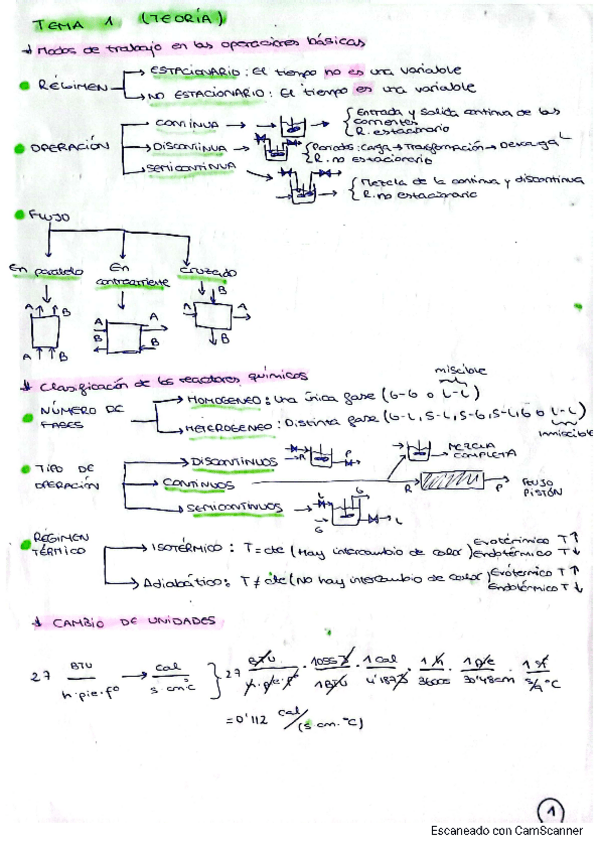 TEMA 1 (TEORÍA)
Modos de trabajo en las operaciones básicas
RÉGIMEN
ESTACIONARIO: El tiempo no es una variable
NO ESTACIONARIO: El tiempo es una variable
OPERACIÓN
CONTINUA
Entrada y salida continua de las corrientes
R. estacionario
DISCONTINUA
Periodo: carga → Transformación → Descarga
R. no estacionario
SEMICONTINUA
Mezcla de la continua y discontinua
R. no estacionario
FLUJO
En paralelo
En contracorriente
cruzado
A B
A B
A A
B B
B
A A
B
Clasificación de los reactores químicos
miscible
NÚMERO DE FASES
HOMOGENEO: Una única fase (G-G o L-L)
HETEROGENEO: Distinta fase (G-L, S-L, S-G, S-L, G o L-L)
inmiscible
TIPO DE OPERACIÓN
DISCONTINUOS
R P
MEZCLA COMPLETA
CONTINUOS
R P
FLUJO PISTÓN
SEMICONTINUOS
L G
G L
RÉGIMEN TÉRMICO
ISOTÉRMICO: T = cte (Hay intercambio de calor)
Exotérmico T ↑
Endotérmico T ↓
Adiabático: T ≠ cte (No hay intercambio de calor)
Exotérmico T ↑
Endotérmico T ↓
CAMBIO DE UNIDADES
27 BTU / h·pie·fº → cal / s·cm·ºC } 27 BTU / h·pie·fº · 1055 J / 1 BTU · 1 cal / 4'187 J · 1 h / 3600 s · 1 pie / 30'48 cm · 1 ºf / 5/9 ºC
= 0'112 cal / (s cm·ºC)
1
Escaneado con CamScanner